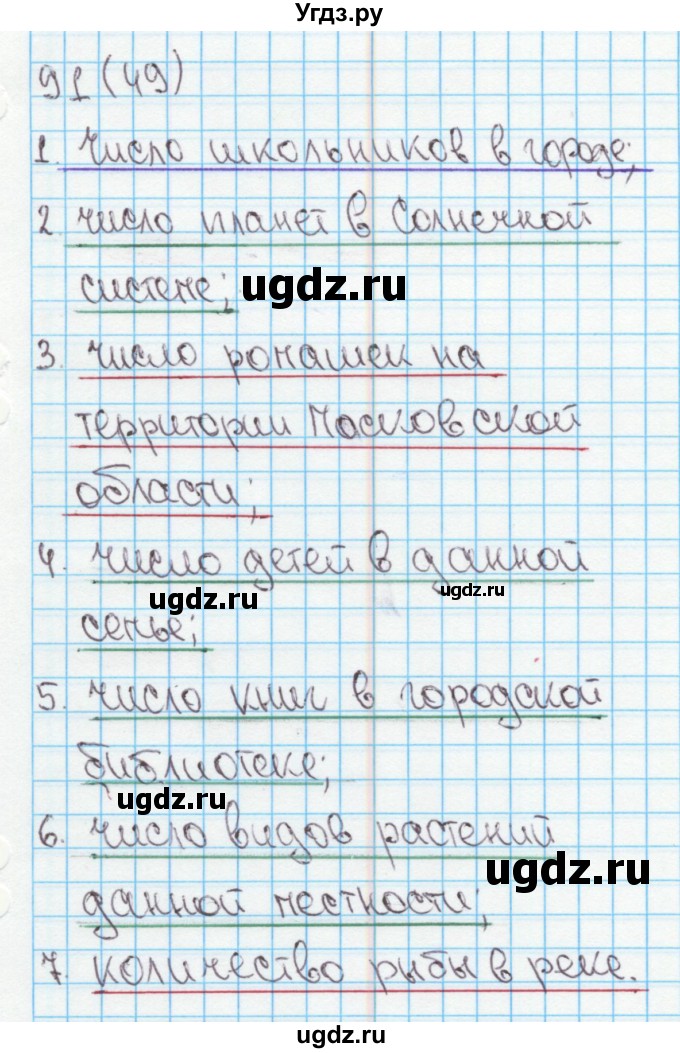 Угдз.ру
91 (49)
1. число школьников в городе;
2. число планет в Солнечной
системе; ugdz.ru
3. число ромашек на
территории Московской
области;
4. число детей в данной
ugdz.ru ugdz.ru
семье;
5. число книг в городской
библиотеке;
ugdz.ru
6. число видов растений
ugdz.ru
данной местности;
7. количество рыбы в реке.
ugdz.ru